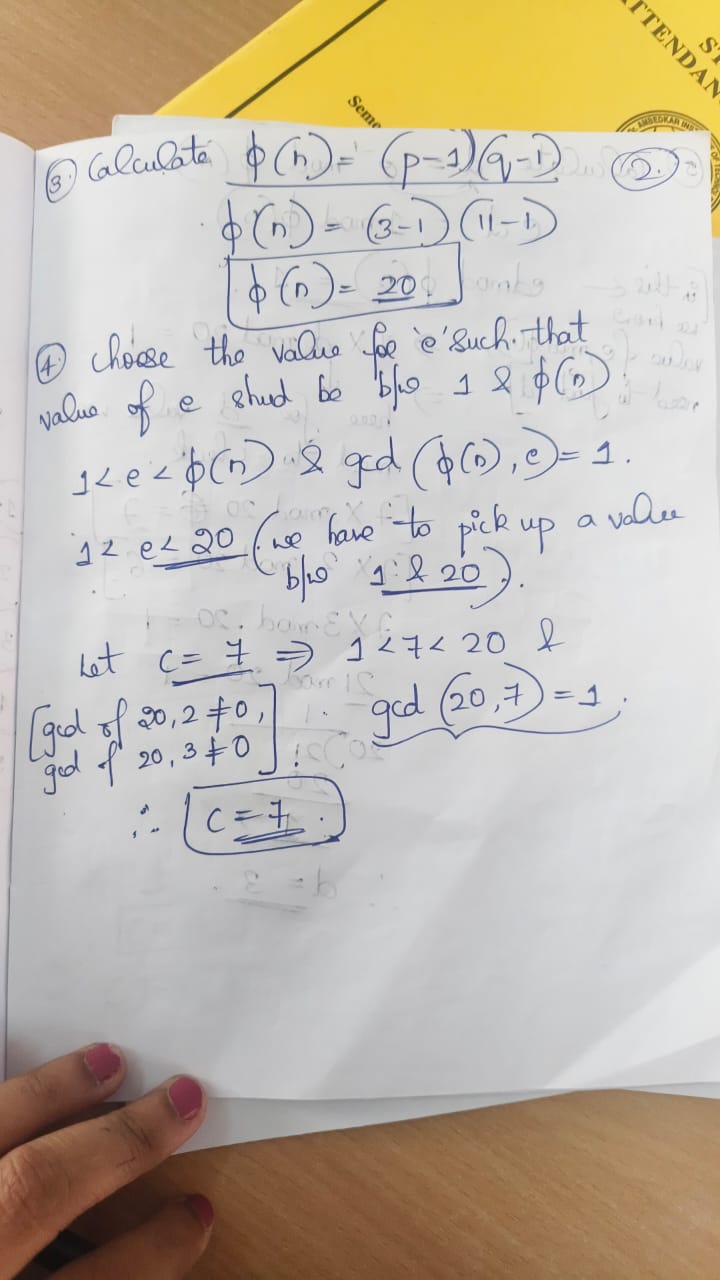 Seme
ATTENDAN
ST
AMBEDKAR INS
③. Calculate ϕ(n) = (p-1)(q-1)
②.
ϕ(n) = (3-1) (11-1)
ϕ(n) = 20.
④. choose the value foe 'e' such that
value of e shud be b/w 1 & ϕ(n)
1<e<ϕ(n) & gcd (ϕ(n), e) = 1.
1< e< 20 (we have to pick up a value
b/w 1 & 20).
Let c = 7 ⇒ 1<7<20 &
[gcd of 20,2 ≠0,
gcd (20,7) = 1.
gcd of 20,3 ≠0]
∴ c = 7.